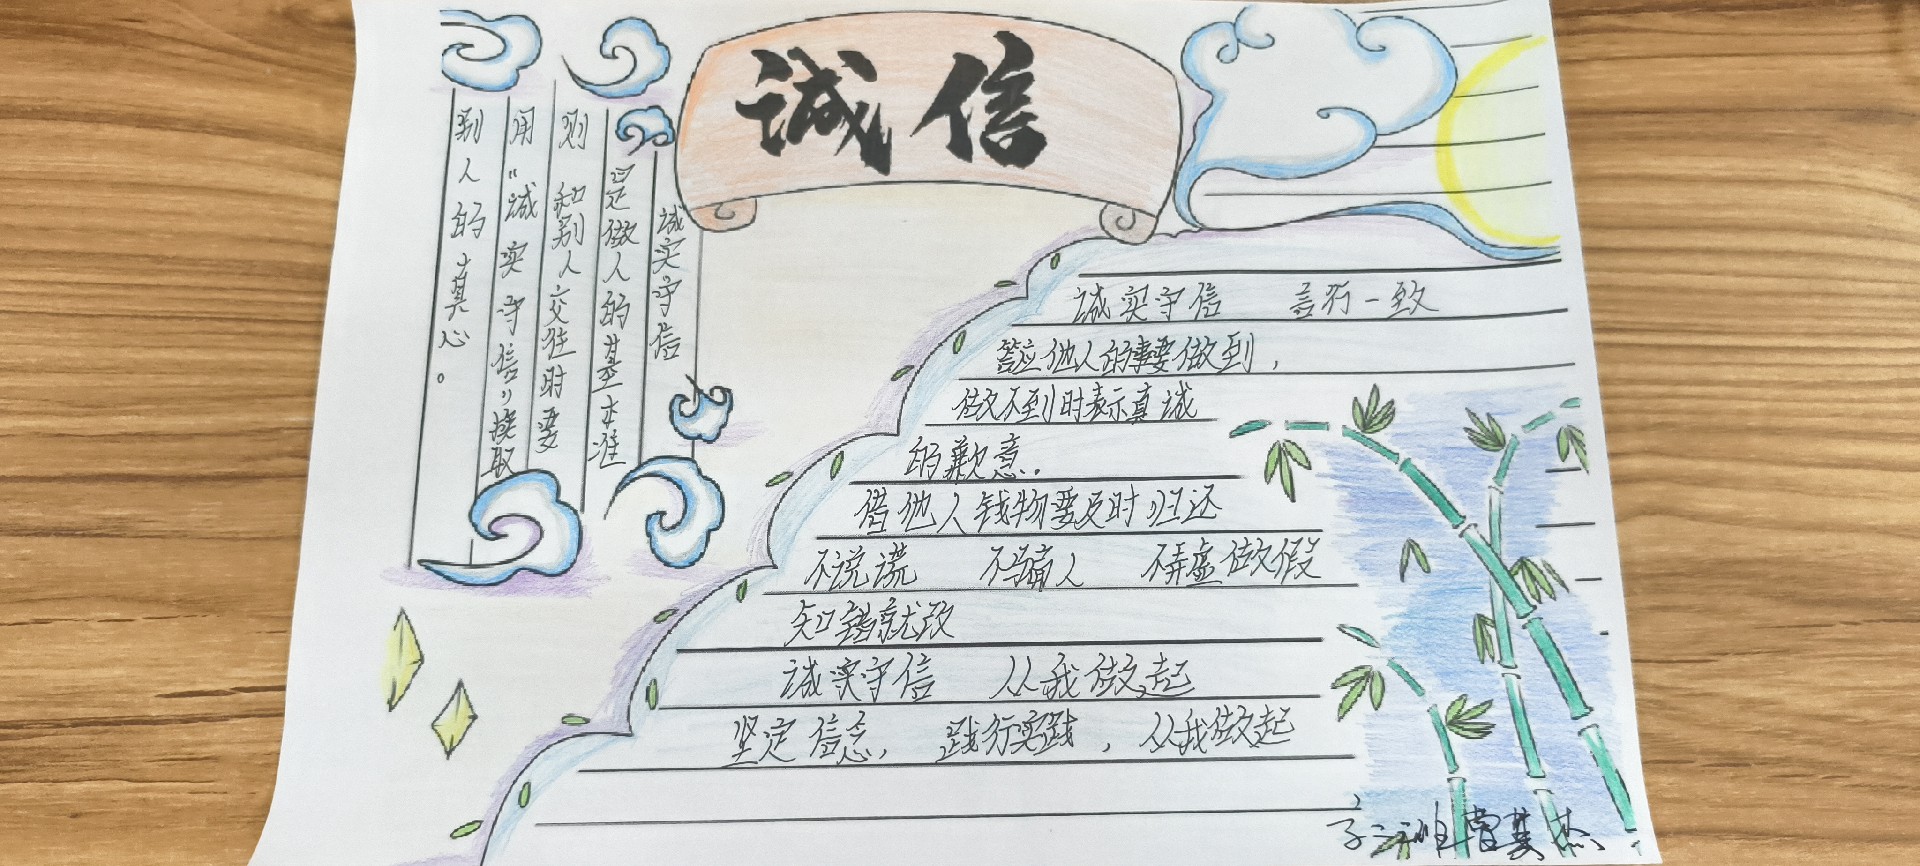 诚信
诚实守信
是做人的基本准
则 和别人交往时要
用“诚实守信”换取
别人的真心。
诚实守信 言行一致
答应他人的事要做到，
做不到时表示真诚
的歉意.
借他人钱物要及时归还
不说谎 不骗人 不弄虚做假
知错就改
诚实守信 从我做起
坚定信念， 践行实践，从我做起